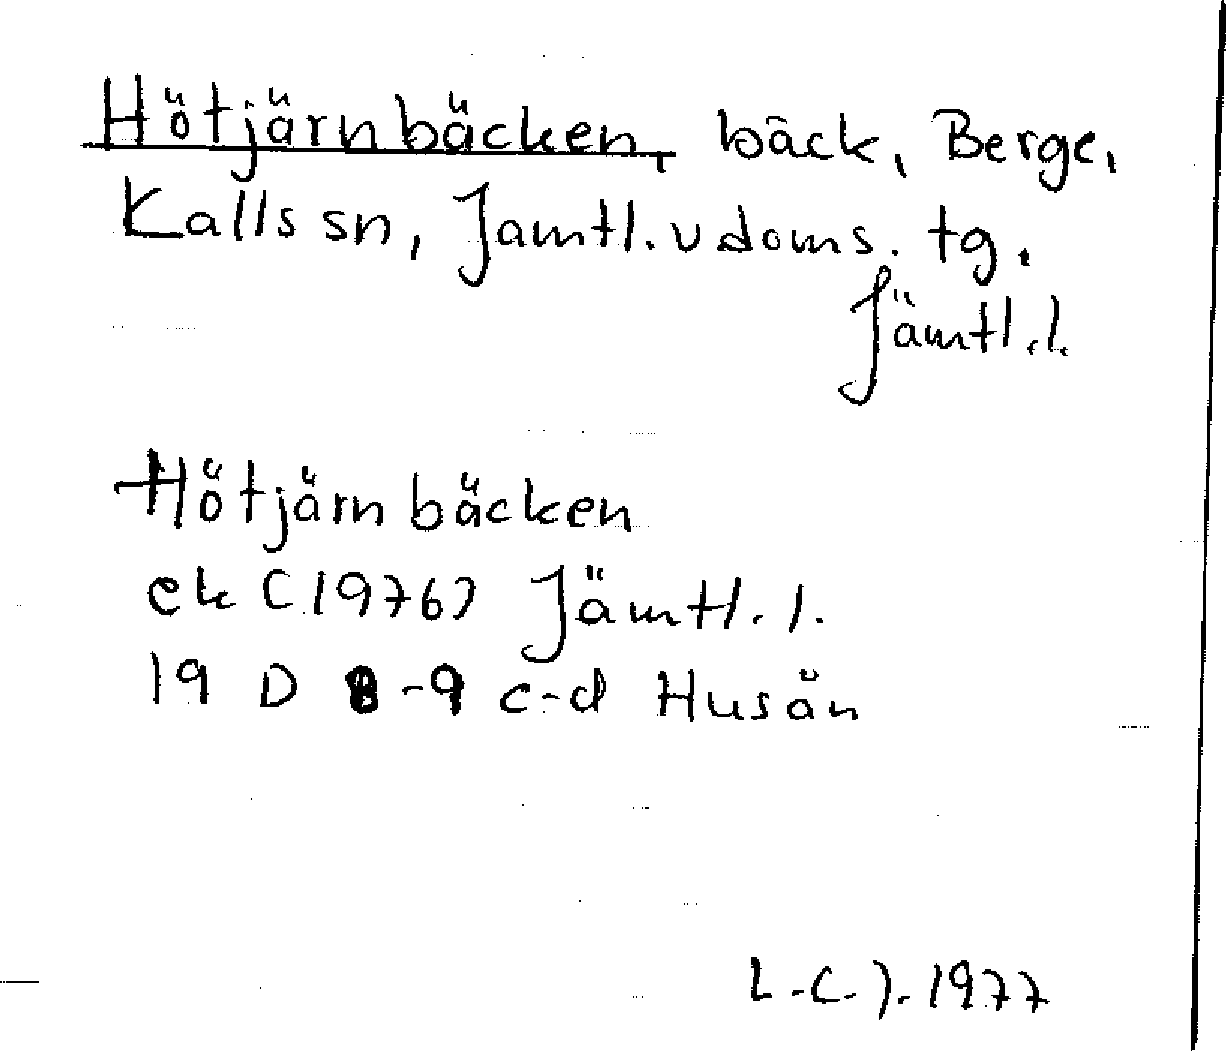 Hötjärnbäcken, bäck, Berge,
Kalls sn, Jämtl. v doms. tg.
Jämtl.l.
Hötjärnbäcken
ek (1976) Jämtl. l.
19 D 8-9 c-d Husån
L.-C. J. 1977